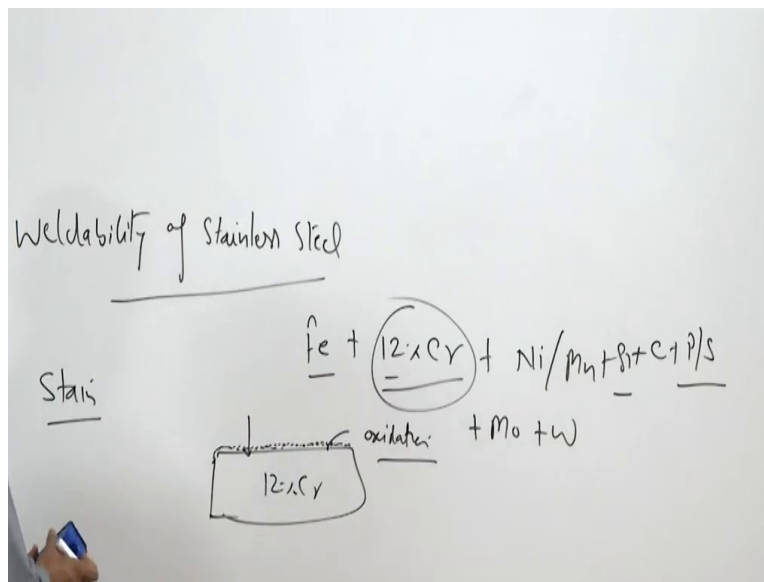 Weldability of Stainless Steel
Fe + 12%Cr + Ni/Mn+Si+C+P/S
Stain
oxidation +Mo +W
12%Cr